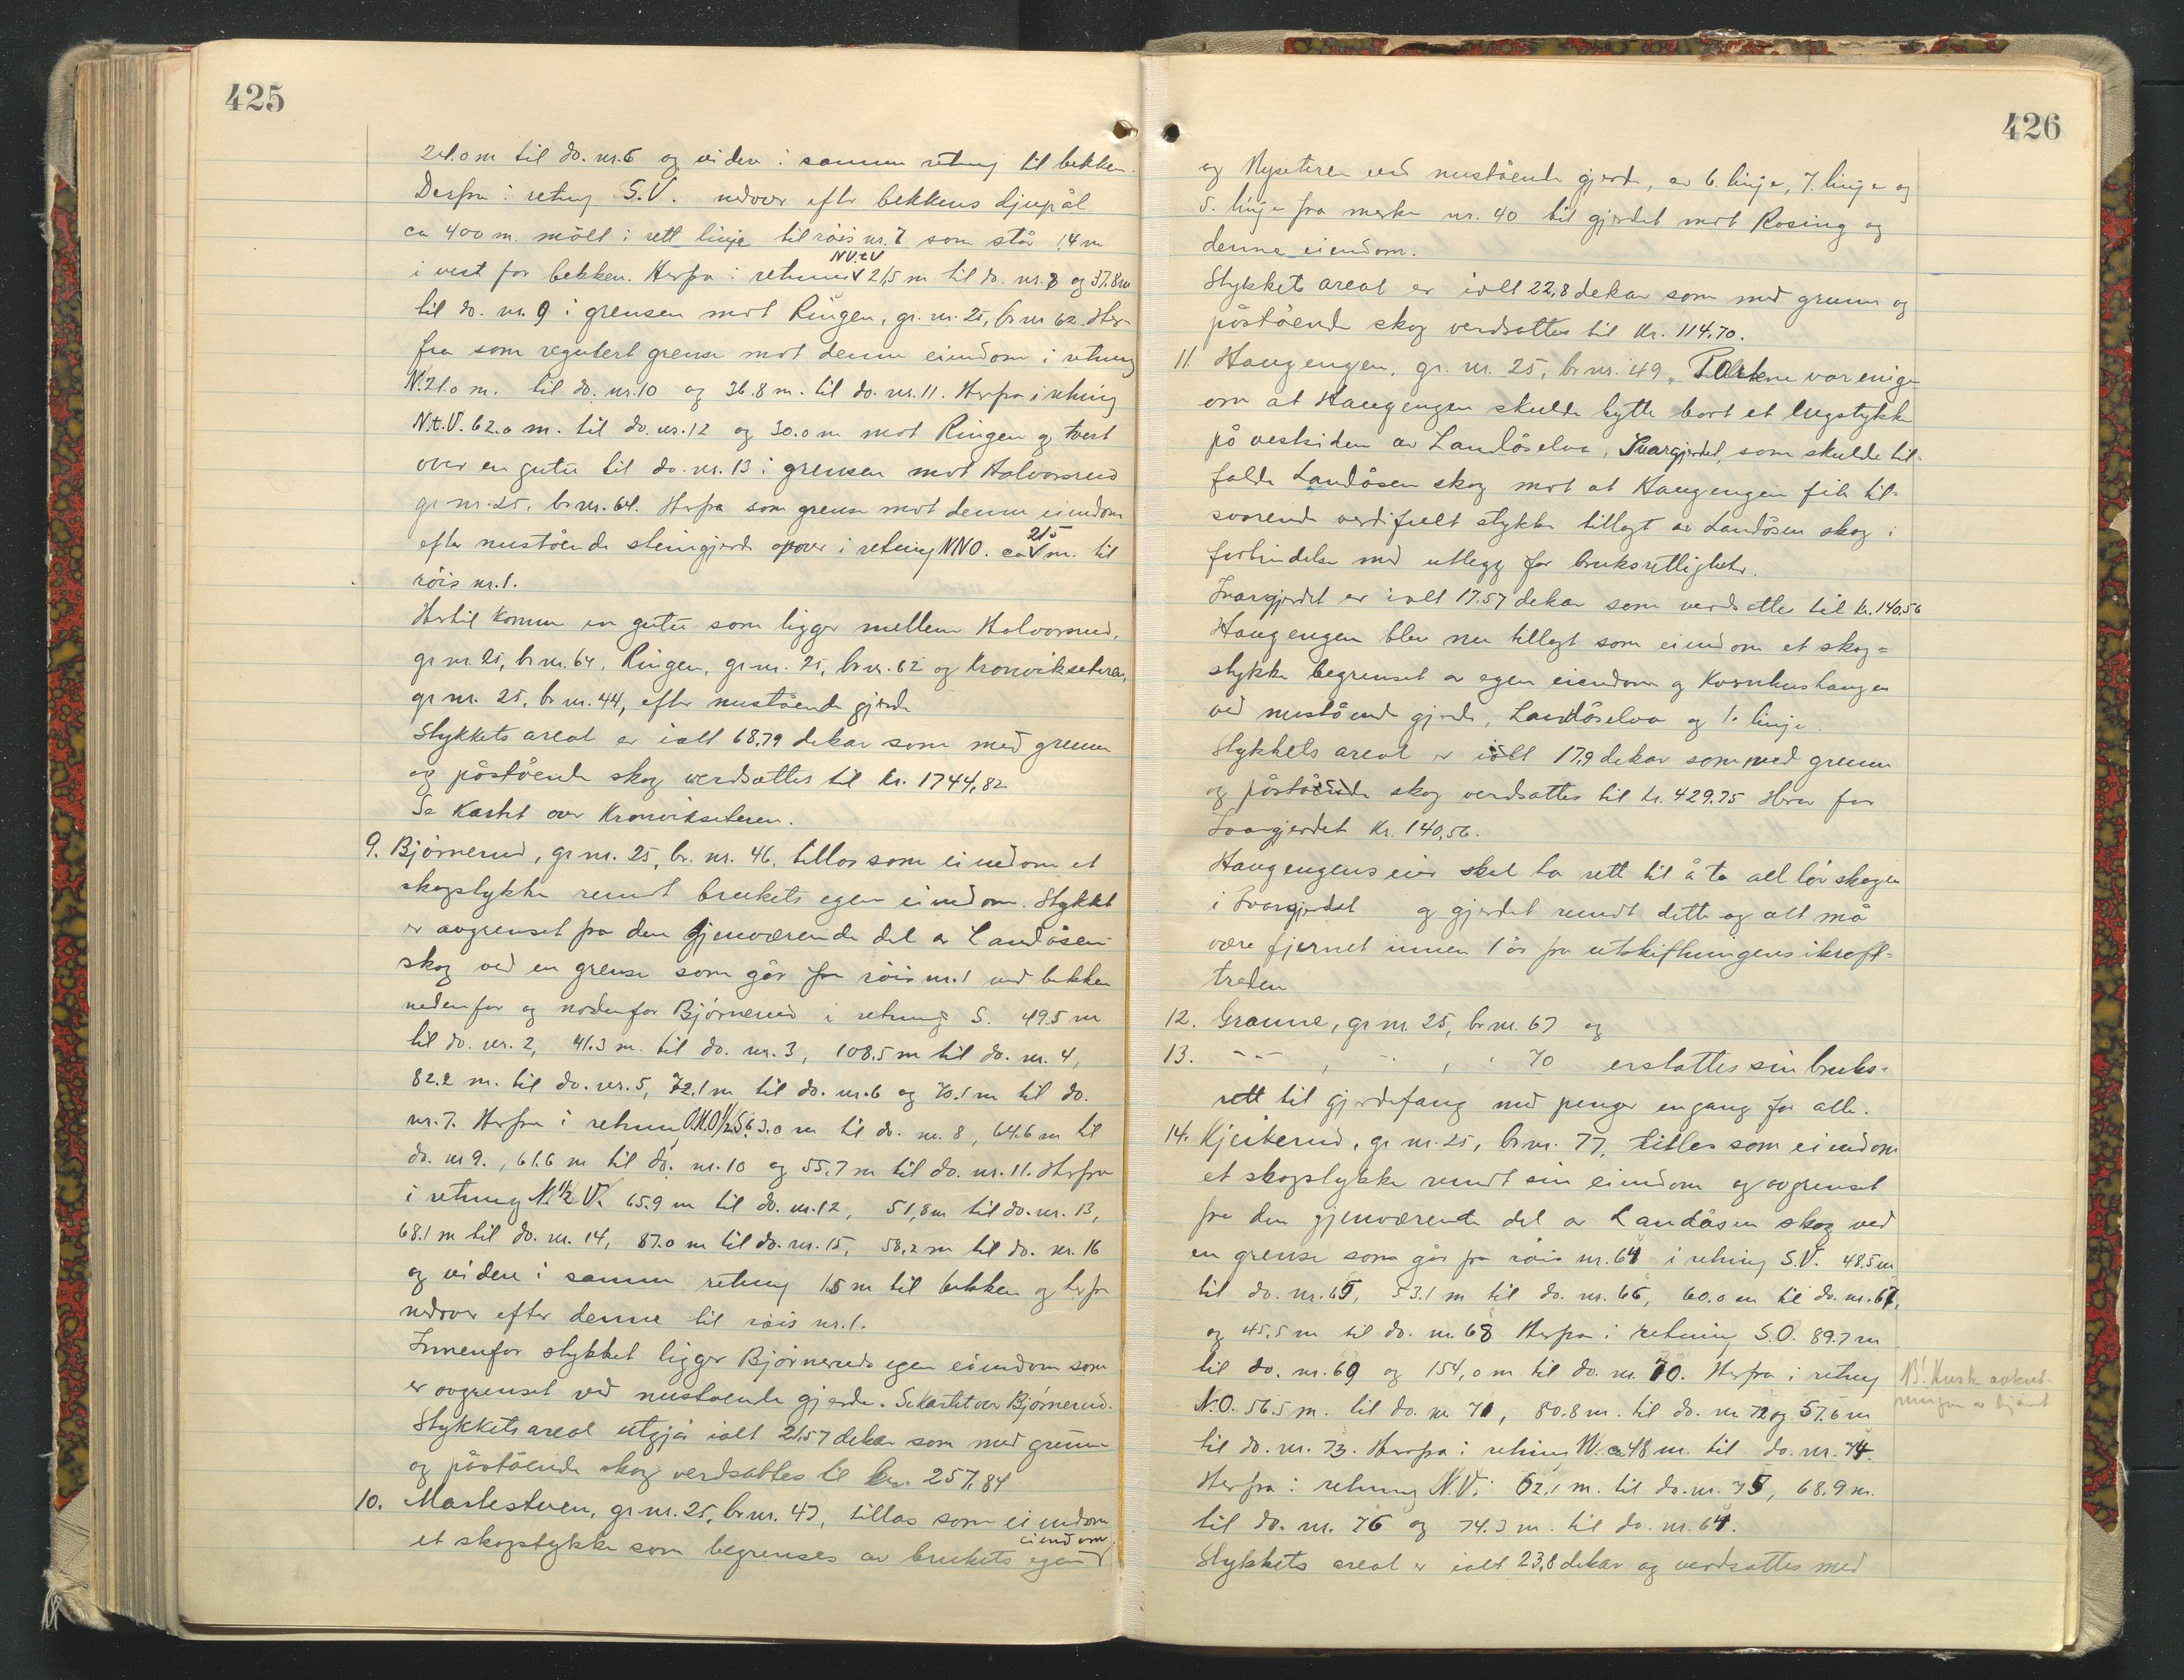 425
24.0 m til do. nr. 6 og videre i samme retning til bekken.
Derfra i retning S.V. nedover efter bekkens djupål
ca 400 m. målt i rett linje til röis nr. 7 som står 14 m
i vest for bekken. Herfra i retning NV.t.V 21,5 m til do. nr. 8 og 37.8 m
til do. nr. 9 i grensen mot Ringen, gr. nr. 25, br nr 62. Her-
fra som regulert grense mot denne eiendom i retning
N. 21.0 m. til do. nr. 10 og 36.8 m. til do. nr. 11. Herfra i retning
N.t.V. 62.0 m. til do. nr. 12 og 30.0 m mot Ringen og tvert
over en gutu til do. nr. 13 i grensen mot Halvorsrud
gr. nr. 25, br. nr. 64. Herfra som grense mot denne eiendom
efter nustående steingjerde opover i retning NNO. ca 215 m. til
röis nr. 1.
Hertil kommer en gutu som ligger mellem Halvorsrud,
gr. nr. 25, br. nr. 64, Ringen, gr. nr. 25, br. nr. 62 og Kronvikseteren,
gr. nr. 25, br. nr. 44, efter nustående gjerde
Stykkets areal er ialt 68,79 dekar som med grunn
og påstående skog verdsattes til kr. 1744,82
Se Kartet over Kronvikseteren.
9. Björnerud, gr. nr. 25, br. nr. 46, tillas som eiendom et
skogstykke rundt brukets egen eiendom. Stykket
er avgrenset fra den gjenværende del av Landåsen
skog ved en grense som går fra röis nr. 1 ved bekken
nedenfor og nordenfor Björnerud i retning S. 49.5 m
til do. nr. 2, 41.3 m. til do. nr. 3, 108.5 m til do. nr. 4,
82.2 m. til do. nr. 5, 72.1 m til do. nr. 6 og 70.1 m til do.
nr. 7. Herfra i retning O.N.O 1/2 S. 63.0 m til do. nr. 8, 64.6 m til
do. nr 9., 61.6 m til do. nr. 10 og 55.7 m til do. nr. 11. Herfra
i retning N. 1/2 V. 65.9 m til do. nr. 12, 51,8 m til do. nr. 13,
68.1 m til do. nr. 14, 87.0 m til do. nr. 15, 58,2 m til do. nr. 16
og videre i samme retning 15 m til bekken og herfra
nedover efter denne til röis nr. 1.
Innenfor stykket ligger Björneruds egen eiendom som
er avgrenset ved nustående gjerde. Se Kartet over Björnerud.
Stykkets areal utgjör ialt 21,57 dekar som med grunn
og påstående skog verdsattes til kr. 257,84
10. Marlesteren, gr. nr. 25, br. nr. 47, tillas som eiendom
et skogstykke som begrenses av brukets egen eiendom
426
og Nyseteren ved nustående gjerde, av 6. linje, 7. linje og
5. linje fra merke nr. 40 til gjerdet mot Rosing og
denne eiendom.
Stykkets areal er ialt 22,8 dekar som med grunn og
påstående skog verdsattes til kr. 114,70.
11. Haugengen, gr. nr. 25, br. nr. 49. Partene var enige
om at Haugengen skulde bytte bort et stykke
på vestsiden av Landåselva, Svargjerdet, som skulde til-
falde Landåsen skog mot at Haugengen fik til-
svarende verdifuelt stykke tillagt av Landåsen skog i
forbindelse med utlegg for bruksrettigheter.
Svargjerdet er ialt 17.57 dekar som verdsattes til kr. 140,56
Haugengen blev nu tillagt som eiendom et skog=
stykke begrenset av egen eiendom og Kvernhushaugen
ved nustående gjerde, Landåselva og 1. linje.
Stykkets areal er ialt 17,9 dekar som med grunn
og påstående skog verdsattes til kr. 429.75 Herav for
Svargjerdet kr. 140,56.
Haugengens eier skal ha rett til å ta all lövskogen
i Svargjerdet og gjerdet rundt dette og alt må
være fjernet innen 1 år fra utskiftningens ikraft-
treden
12. Granne, gr. nr. 25, br. nr. 67 og
13. -"- , -"- , " 70 erstattes sin bruks-
rett til gjerdefang med penger en gang for alle.
14. Kjeikerud, gr. nr. 25, br. nr. 77, tilles som eiendom
et skogstykke rundt sin eiendom og avgrenset
fra den gjenværende del av Landåsen skog ved
en grense som går fra röis nr. 64 i retning S.V. 48.5 m
til do. nr. 65, 53.1 m til do. nr. 66, 60.0 m til do. nr. 67,
og 45.5 m til do. nr. 68 Herfra i retning S.O. 89.7 m
til do. nr. 69 og 154,0 m til do. nr. 70. Herfra i retning
N.O. 56.5 m. til do. nr. 71, 80.8 m. til do. nr 72 og 57.6 m
til do. nr. 73. Herfra i retning N. ca 48 m. til do. nr. 74.
Herfra i retning N.V. 62.1 m. til do. nr. 75, 68.9 m.
til do. nr. 76 og 74.3 m. til do. nr. 64.
Stykkets areal er ialt 23,8 dekar og verdsattes med
NB! Husk